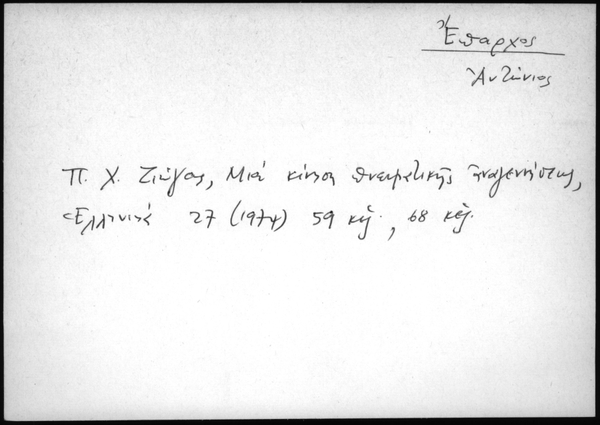 Ἔπαρχος
Ἀντώνιος
Π. Χ. Ζιώγας, Μιά κίνηση πνευματικῆς ἀναγεννήσεως,
Ἑλληνικά 27 (1974) 59 κἑ., 68 κἑ.